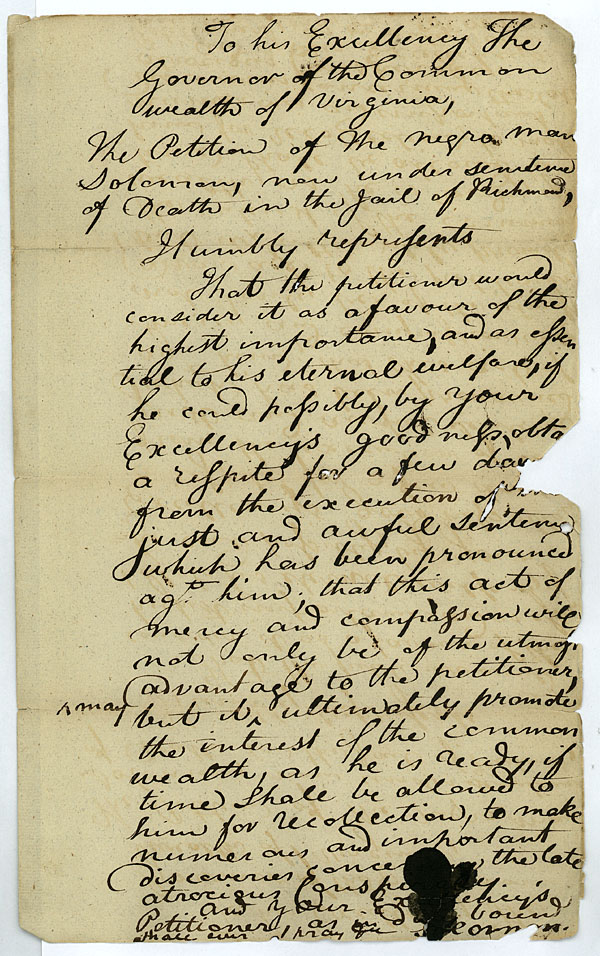 To his Excellency The
Governor of the Common
wealth of Virginia,
The Petition of the negro man
Solomon, now under sentence
of Death in the Jail of Richmond,
Humbly represents
That the petitioner would
consider it as a favour of the
highest importance, and as essen
tial to his eternal welfare, if
he could possibly, by your
Excellency's goodness, obta
a respite for a few da
from the execution of
just and awful sentence
which has been pronounced
agt. him; that this act of
mercy and compassion will
not only be of the utmos
advantage to the petitioner,
but it ultimately promote
^ may
the interest of the common
wealth, as he is ready, if
time shall be allowed to
him for recollection, to make
numerous and important
discoveries the late
atrocious
and your
Petitioner, as in bound
shall ever pray